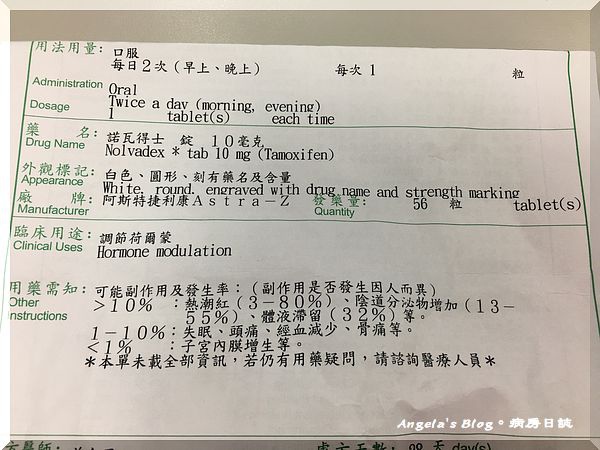 用法用量: 口服
每日2次(早上、晚上) 每次 1 粒
Administration Oral
Dosage Twice a day (morning, evening)
1 tablet(s) each time
藥 名: 諾瓦得士 錠 10毫克
Drug Name Nolvadex * tab 10 mg (Tamoxifen)
外觀標記: 白色、圓形、刻有藥名及含量
Appearance White, round, engraved with drug name and strength marking
廠 牌: 阿斯特捷利康Astra-Z 發藥量: 56 粒 tablet(s)
Manufacturer Quantity
臨床用途: 調節荷爾蒙
Clinical Uses Hormone modulation
用藥需知: 可能副作用及發生率:(副作用是否發生因人而異)
Other >10% :熱潮紅(3-80%)、陰道分泌物增加(13-
Instructions 55%)、體液滯留(32%)等。
1-10%:失眠、頭痛、經血減少、骨痛等。
<1% :子宮內膜增生等。
*本單未載全部資訊,若仍有用藥疑問,請諮詢醫療人員*
Angela's Blog。病房日誌
day(s)